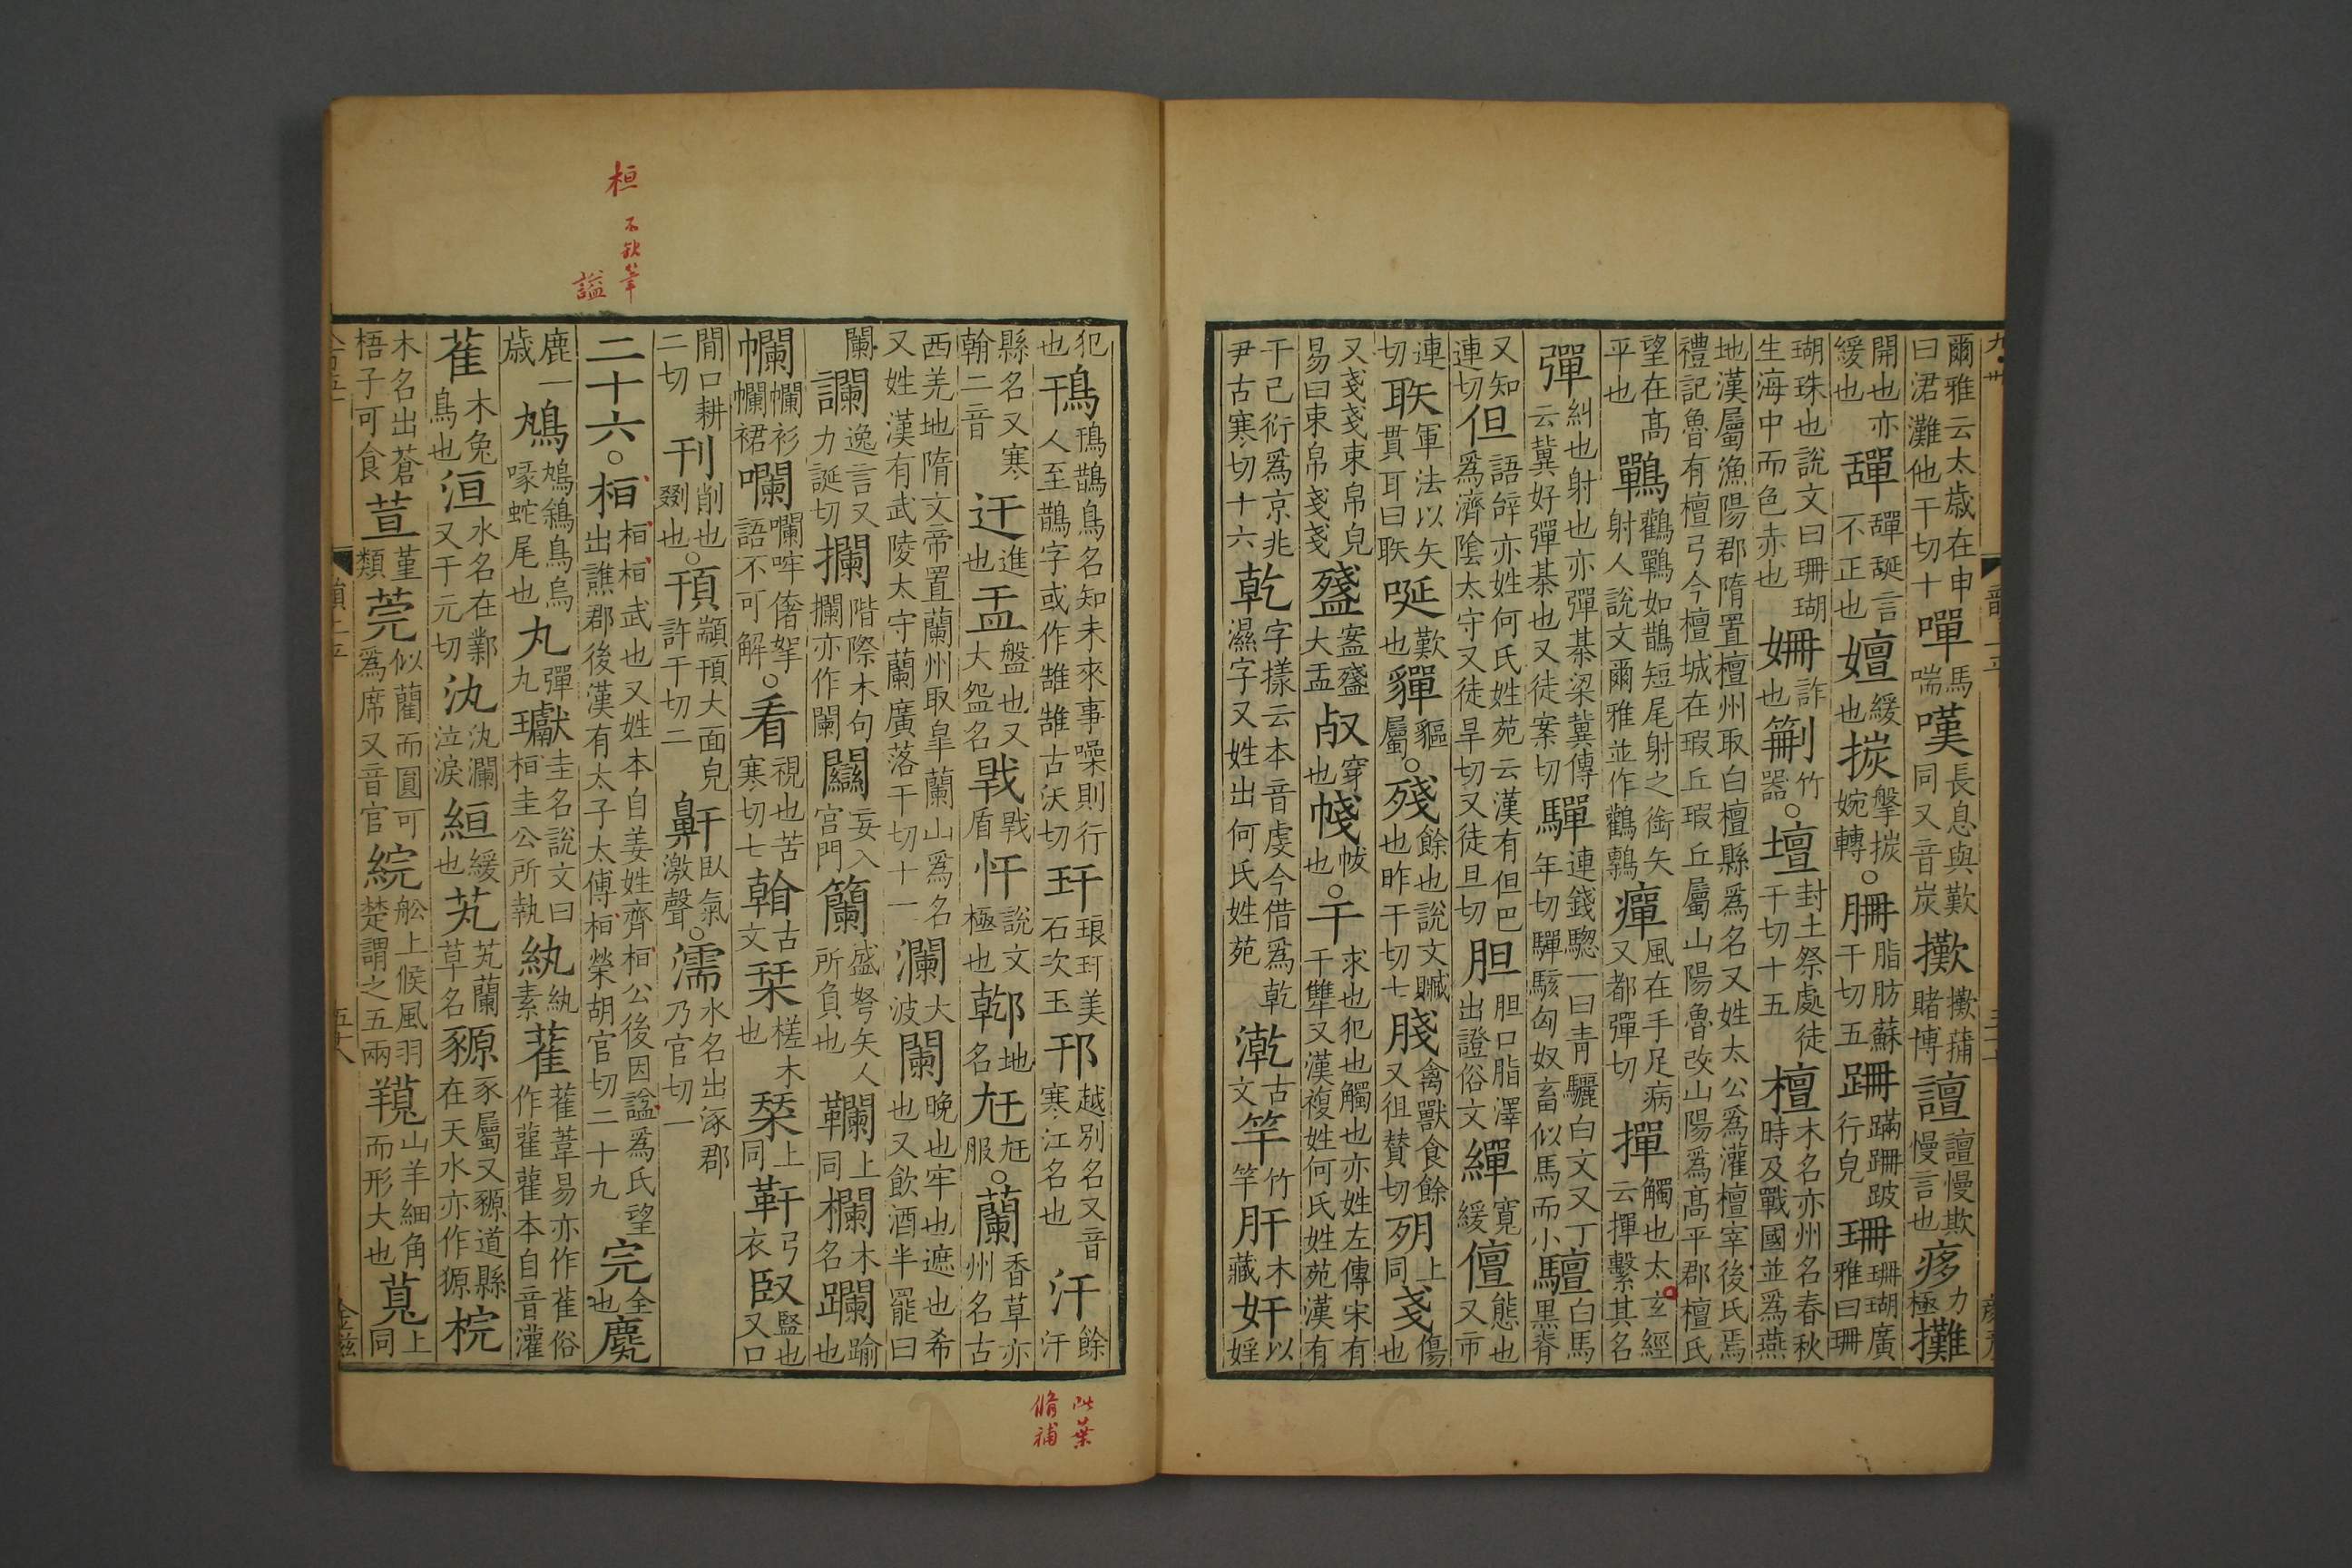 爾雅云太歲在申曰涒灘他干切十嘽馬喘嘆長息與歎同又音炭擹擹蒱賭博譠譠慢欺慢言也㾋力極攤
開也亦緩也䡲䡲誕言不正也嬗緩也㨏㨏婉轉○𦙱脂肪蘇干切五跚蹣跚跛行皃珊珊瑚廣雅曰珊
瑚珠也說文曰珊瑚生海中而色赤也姍詐也䈀竹器○壇封土祭處徒干切十五檀木名亦州名春秋時及戰國並爲燕
地漢屬漁陽郡隋置檀州取白檀縣爲名又姓太公爲灌檀宰後氏焉禮記魯有檀弓今檀城在瑕丘瑕丘屬山陽魯改山陽爲髙平郡檀氏
望在髙平也鷤鸛鷤如鵲短尾射之銜矢射人說文爾雅並作鸛鷒癉風在手足病又都彈切撣觸也太玄經云撣繫其名
彈糾也射也亦彈棊梁冀傳云冀好彈棊也又徒案切驒連錢驄一曰青驪白文又丁年切驒騱匈奴畜似馬而小驙白馬黑脊
又知連切但語辝亦姓何氏姓苑云漢有但巴爲濟陰太守又徒旱切又徒旦切胆胆口脂澤出證俗文繟寛緩儃態也又市
連切䏈軍法以矢貫耳曰䏈唌歎也貚貙屬○殘餘也說文贓也昨干切七𦠋禽獸食餘又徂賛切㱚上同戔傷也
又戔戔束帛皃易曰束帛戔戔㱧盝㱧大盂𣦼穿也帴帗也○干求也犯也觸也亦姓左傳宋有干犫又漢複姓何氏姓苑漢有
干己衍爲京兆尹古寒切十六乾字樣云本音虔今借爲乾濕字又姓出何氏姓苑漧古文竿竹竿肝木藏奸以婬
犯也鳱鳱鵲鳥名知未來事噪則行人至鵲字或作雗雗古沃切玕琅玕美石次玉邗越別名又音寒江名也汗餘汗
縣名又寒翰二音迀進也盂盤也又大盌名戰戰盾忓說文極也鄿地名尪尪服○蘭香草亦州名古
西羌地隋文帝置蘭州取皐蘭山爲名又姓漢有武陵太守蘭廣落干切十一瀾大波闌晚也牢也遮也希也又飲酒半罷曰
闌讕逸言又力誕切攔階際木句攔亦作闌闥妄入宫門籣盛弩矢人所負也韊上同欄木名躝踰也
幱幱衫幱裙囒囒哰𠎝拏語不可解○看視也苦寒切七翰古文栞槎木也琹上同靬弓衣臤堅也又口
閒口耕二切刋削也剟也○頇顢頇大面皃許干切二鼾臥氣激聲○濡水名出涿郡乃官切一
二十六○桓桓桓武也又姓本自姜姓齊桓公後因謚爲氏望出譙郡後漢有太子太傅桓榮胡官切二十九完全也麃
鹿一歲鴅鴅鵨鳥烏喙蛇尾也丸彈丸瓛圭名說文曰桓圭公所執紈紈素雚雚葦易亦作萑俗作雚雚本自音灌
萑木兔鳥也洹水名在鄴又于元切汍汍瀾泣淚絙緩也芄芄蘭草名豲豕屬又豲道縣在天水亦作獂梡
木名出蒼梧子可食荁堇類莞似藺而圓可爲席又音官綄舩上候風羽楚謂之五兩羱山羊細角而形大也莧上同
桓
不缺筆
謚
此葉
脩補